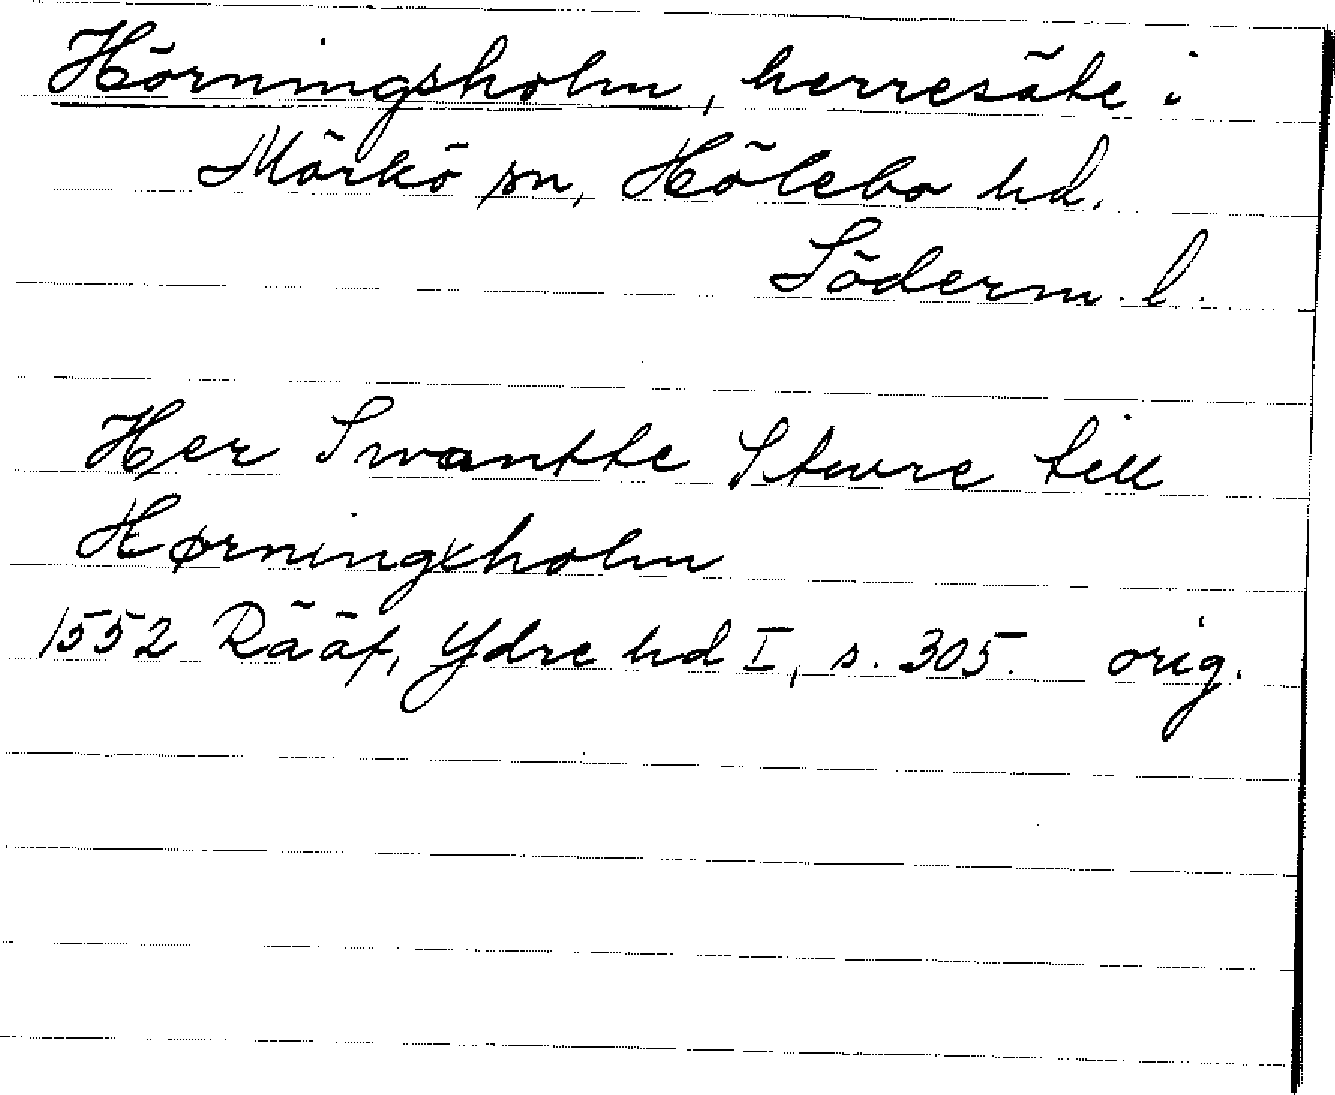 Hörningsholm, herresäte i
Mörkö sn, Hölebo hd.
Söderm. l.
Her Swantte Sture till
Hørningxholm
1552 Rääf, Ydre hd I, s. 305. orig.